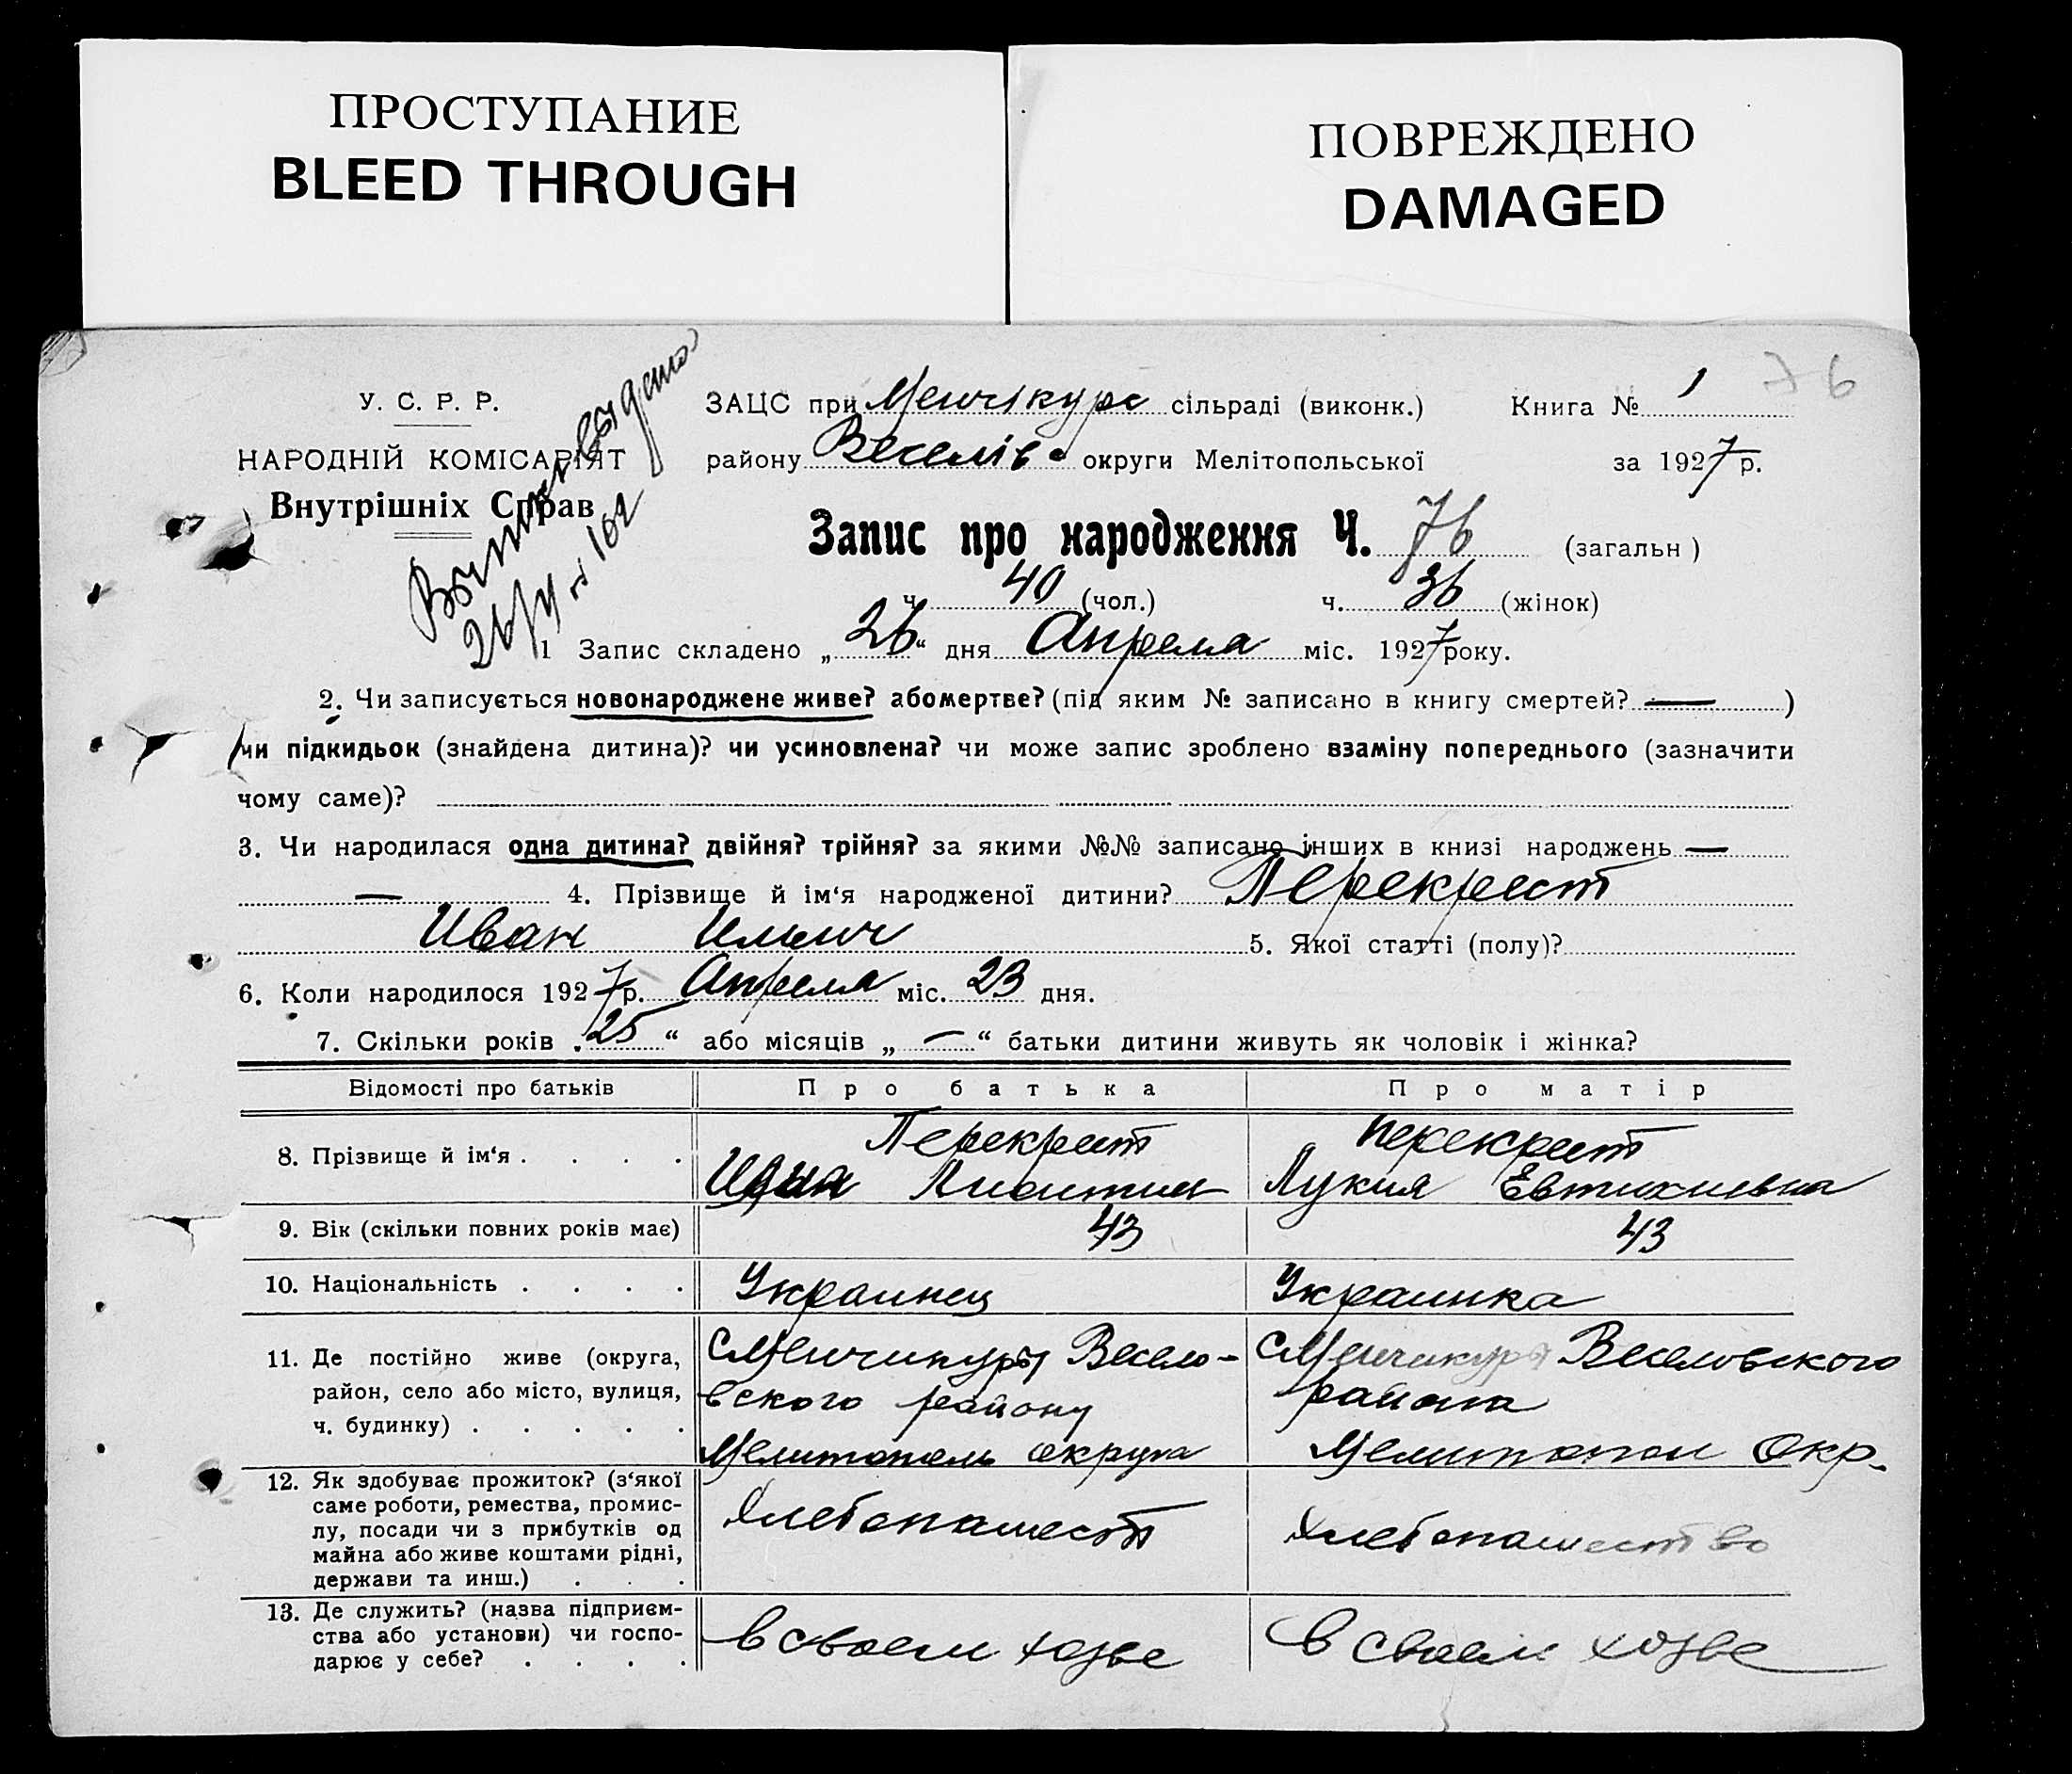 ПРОСТУПАНИЕ
BLEED THROUGH
ПОВРЕЖДЕНО
DAMAGED
76
У. С. Р. Р.
НАРОДНІЙ КОМІСАРІЯТ
Внутрішніх Справ
ЗАЦС при Менчікурс сільраді (виконк.) Книга № 1
району Веселів округи Мелітопольської за 1927 р.
Запис про народження Ч. 76 (загальн )
ч. 40 (чол.) ч. 36 (жінок)
1 Запис складено „26“ дня Апреля міс. 1927 року.
2. Чи записується новонароджене живе? або мертве? (під яким № записано в книгу смертей? — )
чи підкидьок (знайдена дитина)? чи усиновлена? чи може запис зроблено взаміну попереднього (зазначити
чому саме)?
3. Чи народилася одна дитина? двійня? трійня? за якими №№ записано інших в книзі народжень —
— 4. Прізвище й ім‘я народженої дитини? Перекрест
Иван Ильич 5. Якої статті (полу)?
6. Коли народилося 1927 р. Апреля міс. 23 дня.
7. Скільки років „25“ або місяців „—“ батьки дитини живуть як чоловік і жінка?
Відомості про батьків Про батька Про матір
8. Прізвище й ім‘я . . . . Перекрест Перекрест
Лукия Евтихиевна
9. Вік (скільки повних років має) 43 43
10. Національність . . . . Украинец Украинка
11. Де постійно живе (округа, район, село або місто, вулиця, ч. будинку) . . . . .
с Менчикуры Весело-
вского району
Мелитополь округа
с Менчикуры Веселовского
района
Мелитопол Окр.
12. Як здобуває прожиток? (з‘якої саме роботи, ремества, промис-
лу, посади чи з прибутків од
майна або живе коштами рідні,
держави та инш.) . . .
Хлебопашест Хлебопашество
13. Де служить? (назва підприєм-
ства або установи) чи госпо-
дарює у себе? . . . .
в своем хозве в своем хозве